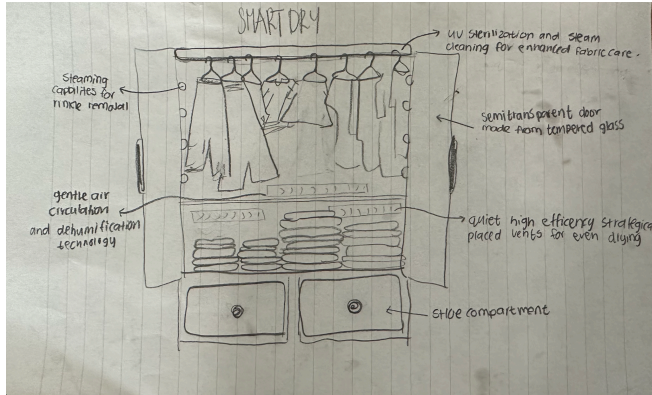 SMART DRY
UV sterilization and steam
cleaning for enhanced fabric care.
Steaming
capabilites for
rinkle removal
semi transparent door
made from tempered glass
gentle air
circulation
and dehumification
technology
quiet high efficency strategica
placed vents for even drying
SHOE compartment